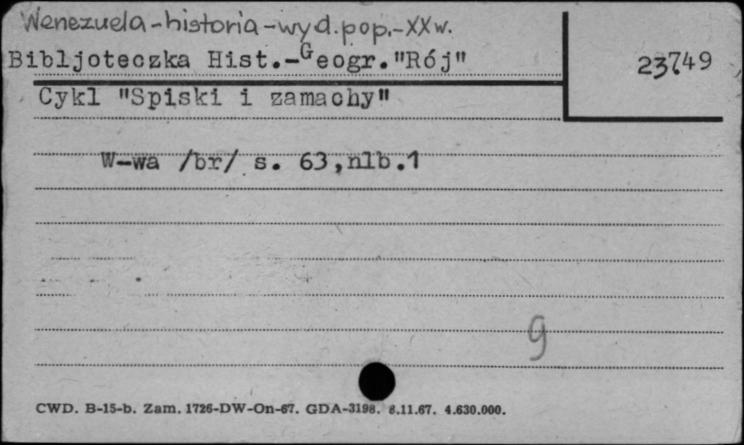 Wenezuela-historia-wyd.pop.-XXw.
Bibljoteczka Hist.-Geogr."Rój"
23749
Cykl "Spiski i zamachy"
W-wa /br/ s. 63,nlb.1
9
CWD. B-15-b. Zam. 1726-DW-On-67. GDA-3198. 8.11.67. 4.630.000.